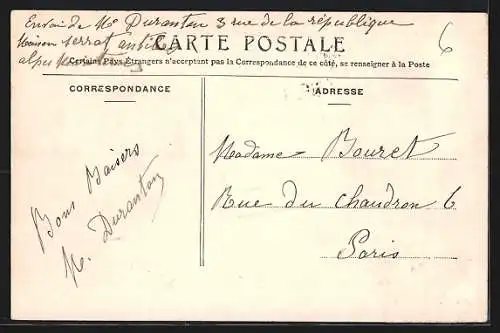 Envoi de Me Duranton 3 rue de la république
maison serrat antibes
CARTE POSTALE
alpes maritimes
Certains Pays Étrangers n'acceptent pas la Correspondance de ce côté, se renseigner à la Poste
6
CORRESPONDANCE
Bons Baisers
M. Duranton
ADRESSE
Madame Bouret
Rue du Chaudron 6
Paris